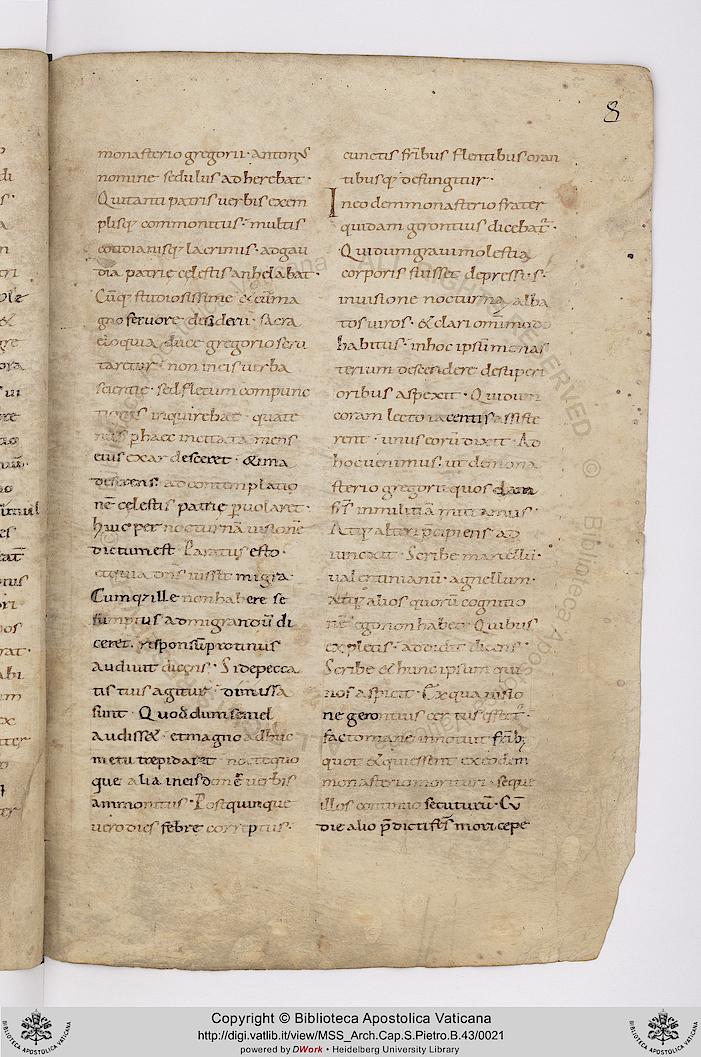 8
monasterio gregorii · antonius
nomine sedulus adherebat ·
Qui tanti patris uerbis exem
plisq; commonitus · multis
cotidianisq; lacrimis · ad gau
dia patrie celestis anhelabat ·
Cuq; studiosissime & cu ma
gno feruore desiderii · sacra
eloquia duce gregorio scru
taretur · non in eis uerba
scientie · sed fletum compunc
tionis inquirebat · quate
nus p haec incitata mens
eius exardesceret · & ima
deserens · ad contemplatio
nē celestis patrię puolaret ·
huic per nocturnā uisionē
dictum est Paratus esto ·
et quia dns iussit migra
Cumq; ille non habere se
sūmptus ad migrandū di
ceret · responsū protinus
audiuit dicens · Si de pecca
tis tuis agitur · dimissa
sunt · Quod dum semel
audisset · et magno adhuc
metu trepidaret nocte quo
que alia in eisdem ē uerbis
ammonitus · Post quinque
uero dies febre correptus ·
cunctis frībus flentibus oran
tibusq; defungitur ·
In eo dem monasterio frater
quidam gerontius dicebat ·
Qui dum graui molestia
corporis fuisset depressus ·
in uisione nocturna alba
tos uiros · & clari omīmodo
habitus · in hoc ipsū monas
terium descendere desuperi
oribus aspexit · Qui dum
coram lecto iacentis assiste
rent · unus eorū dixit · Ad
hoc uenimus · ut de mona
sterio gregorii quos dam
frs in militiā mittamus ·
Atq; alteri p̄cipiens ad
iunxit · Scribe marcellū ·
ualentinianū · agnellum ·
atq; alios quorū cognitio
nē ego non habeo Quibus
expletis · addidit dicens ·
Scribe & hunc ipsum qui
nos aspicit · Ex qua uisio
ne gerontius certus effect' ·
facto mane innotuit frīb;
quot & qui essent ex eodem
monasterio morituri · seque
illos continuo secuturū · Cū
die alio p̄dicti frs mori cepe
Copyright © Biblioteca Apostolica Vaticana
http://digi.vatlib.it/view/MSS_Arch.Cap.S.Pietro.B.43/0021
powered by DWork • Heidelberg University Library